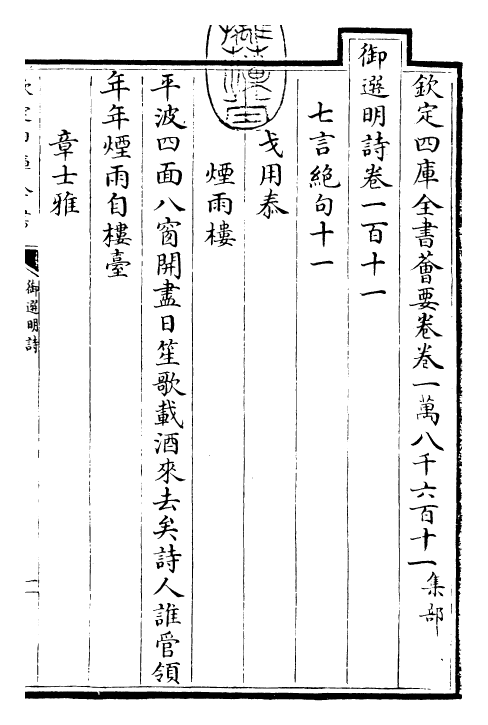 欽定四庫全書薈要卷卷一萬八千六百十一集部
御選明詩卷一百十一
七言絶句十一
戈用泰
煙雨樓
平波四面八窗開盡日笙歌載酒來去矣詩人誰管領
年年煙雨自樓臺
章士雅
御選明詩
一